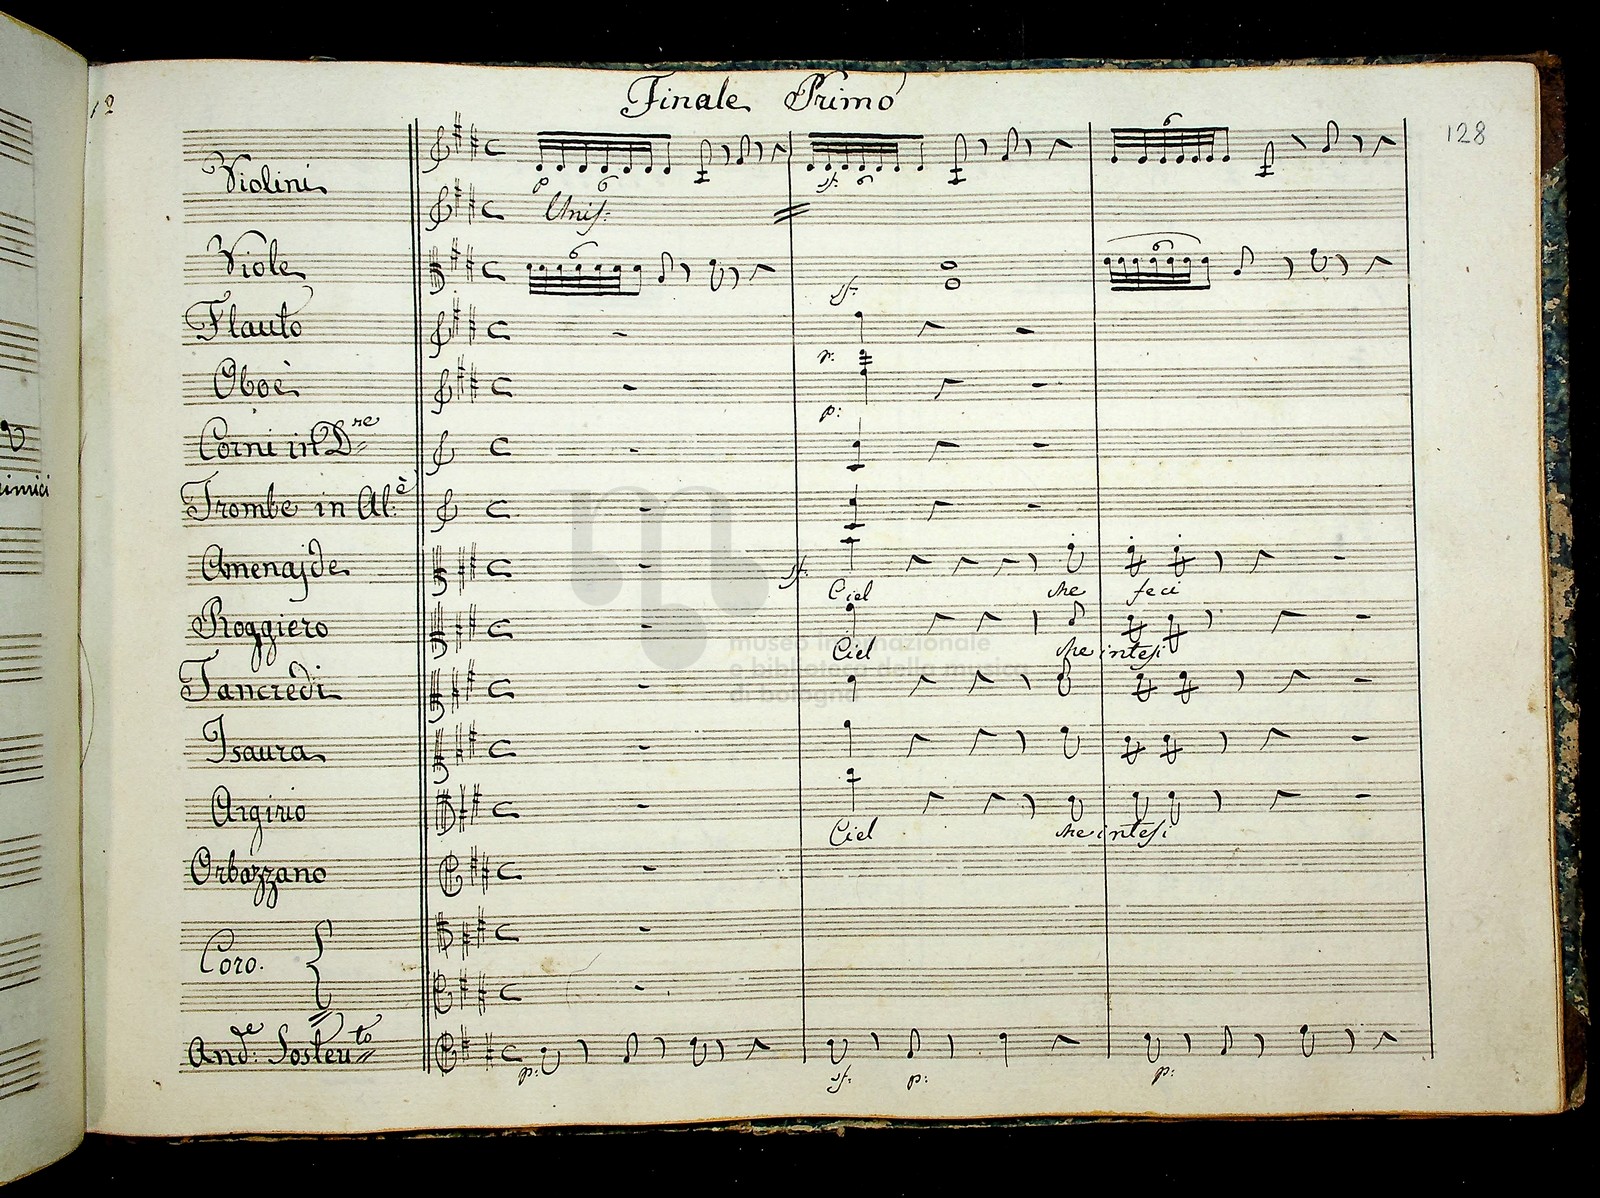 Finale Primo
12
128
Violini
6 6
6
Unis:
Viole
6
6
sf:
Flauto
p:
Oboè
p:
Corni in Dre
Trombe in Al:è
Amenajde
sf.
Ciel che feci
Roggiero
Ciel che intesi
Tancredi
Isaura
Argirio
Ciel che intesi
Orbazzano
Coro.
And:de Sosteu:to
p: sf: p: p:
museo internazionale
e biblioteca della musica
di bologna